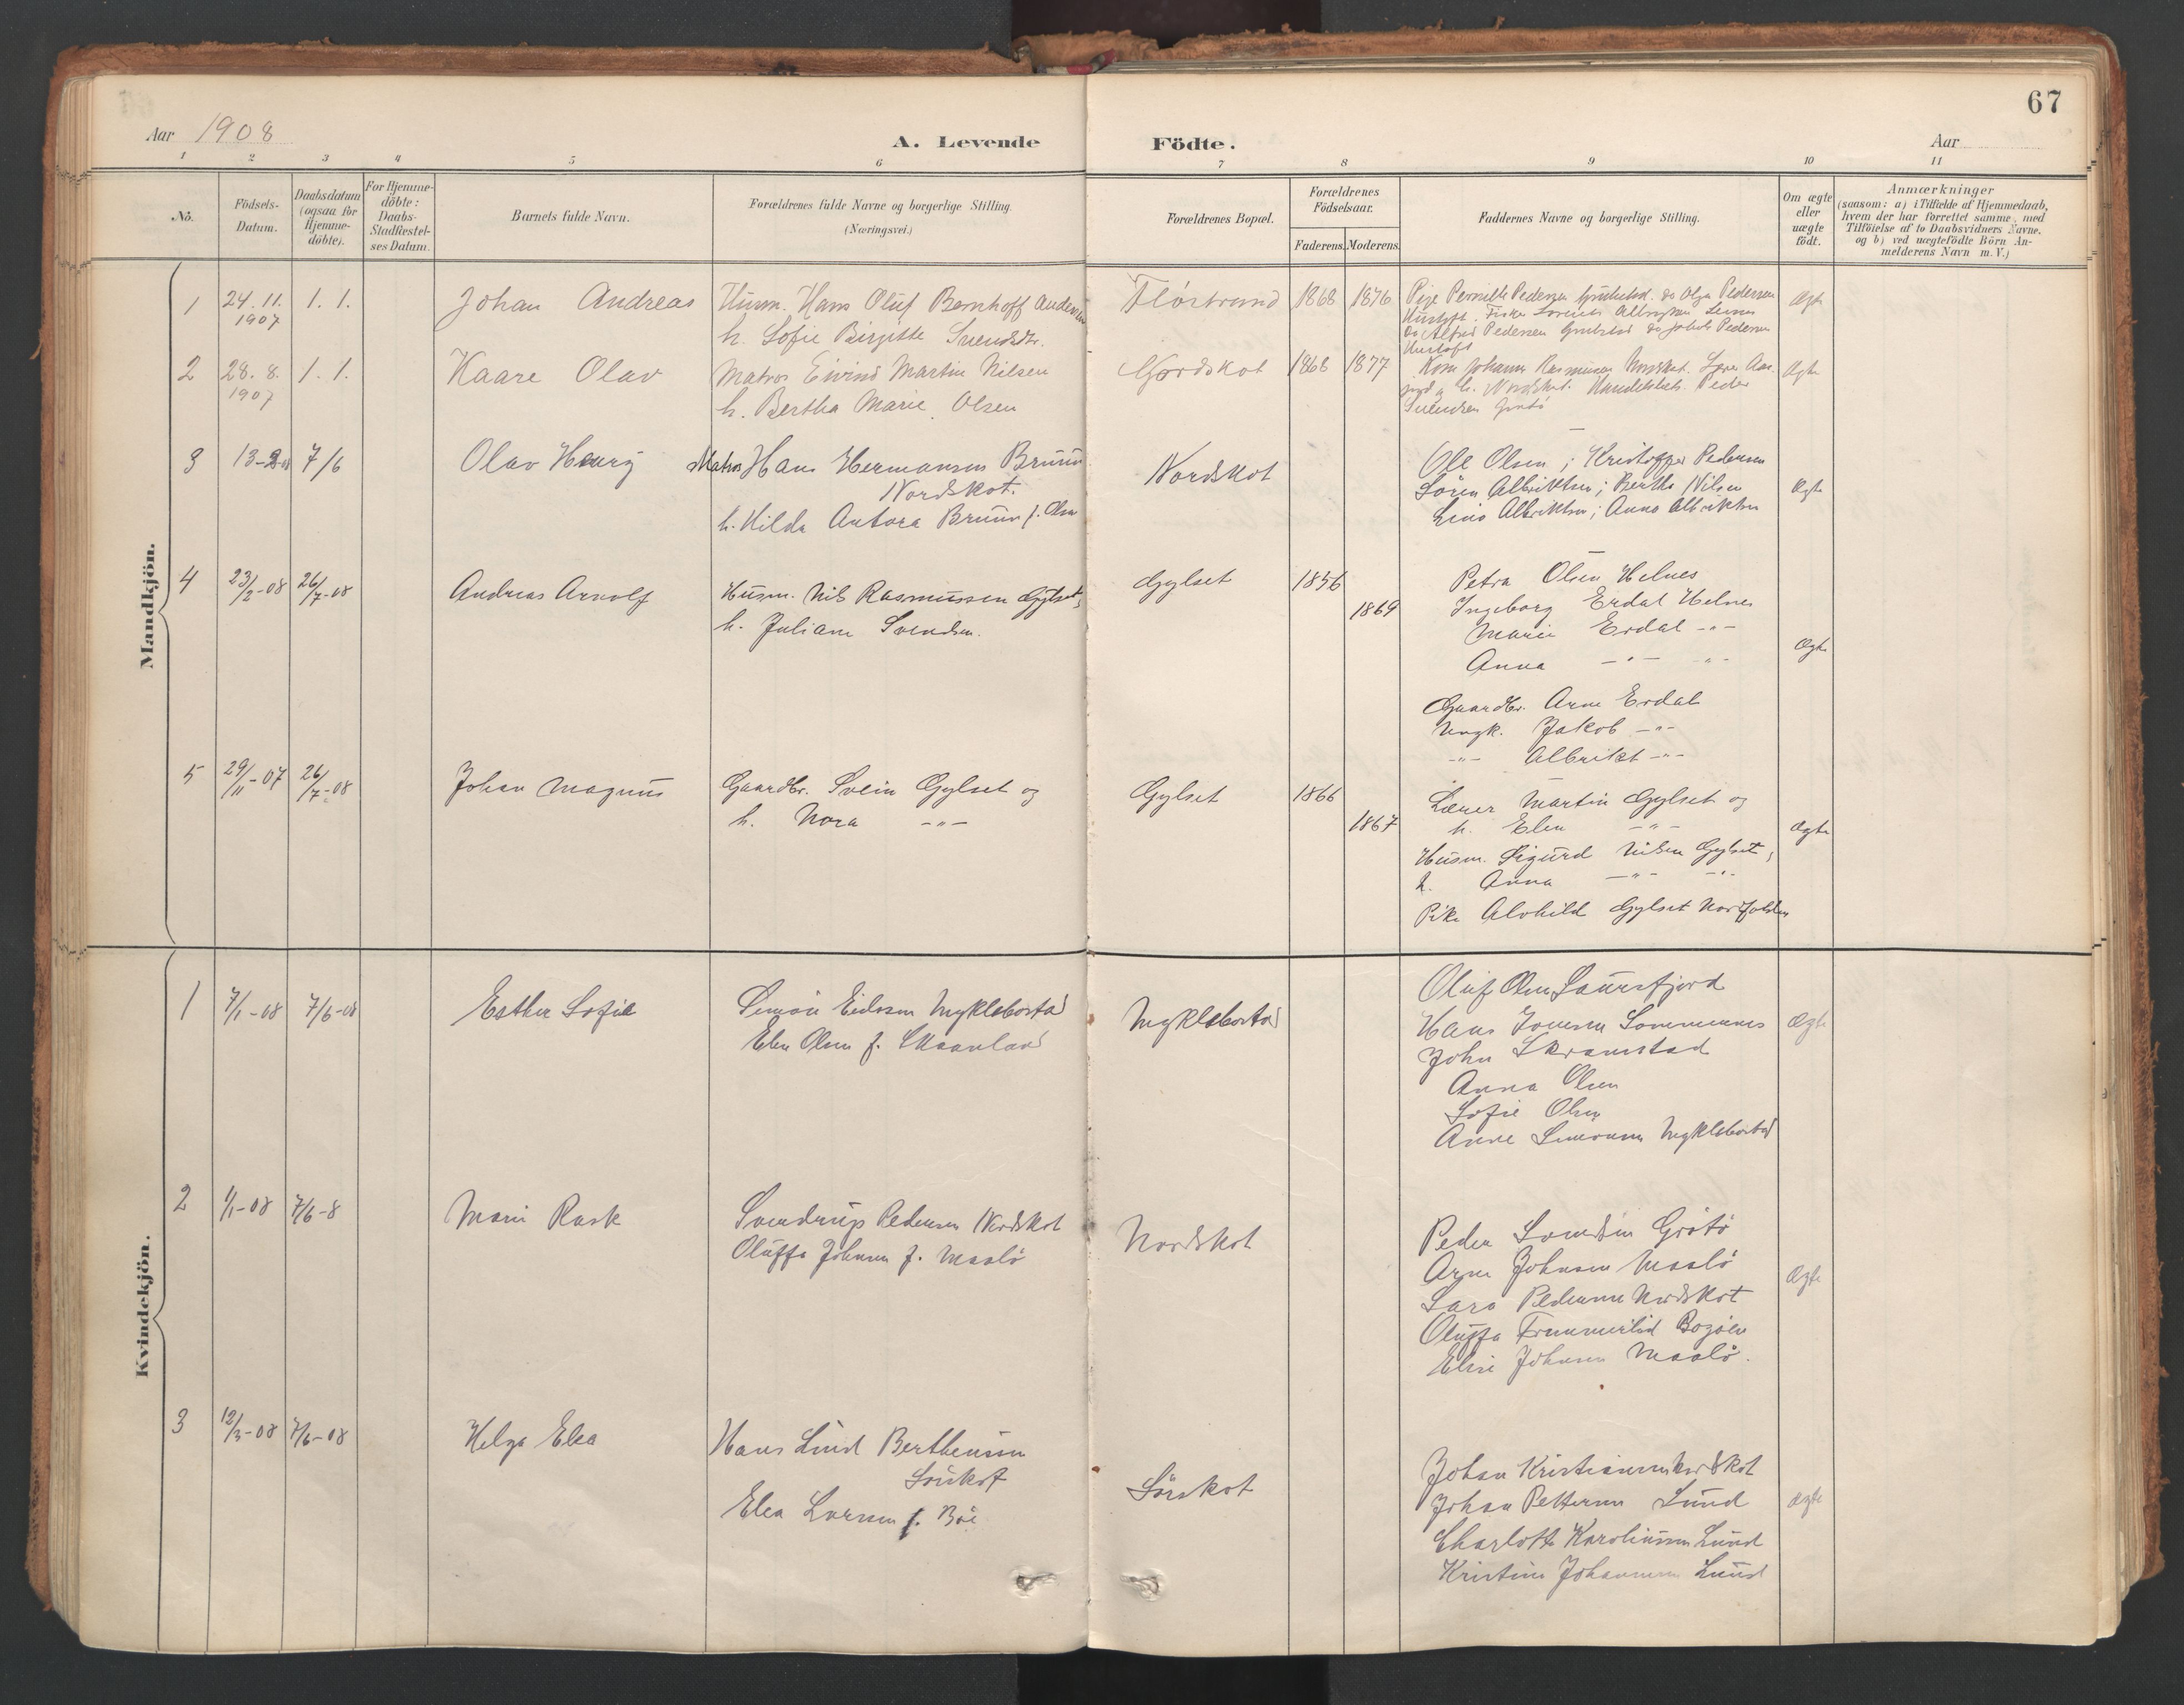 67
Aar 1908
A. Levende Födte.
Aar
1 2 3 4 5 6 7 8 9 10 11
No.
Födsels-Datum.
Daabsdatum (ogsaa for Hjemme-döbte).
For Hjemme-döbte: Daabs-Stadfæstel-ses Datum.
Barnets fulde Navn.
Forældrenes fulde Navne og borgerlige Stilling.
(Næringsvei.)
Forældrenes Bopæl.
Forældrenes Födselsaar.
Faderens. Moderens.
Faddernes Navne og borgerlige Stilling.
Om ægte eller uægte födt.
Anmærkninger
(saasom: a) i Tilfælde af Hjemmedaab,
hvem der har forrettet samme, med
Tilföielse af to Daabsvidners Navne,
og b) ved uægtefödte Börn An-
melderens Navn m. V.)
Mandkjön.
1 24.11. 1907 1.1. Johan Andreas
Husm. Hans Oluf Bernhoff Andersen
h. Sofie Birgitte Svendsdtr.
1868 1876
Pige Pernille Pedersen do Olga Pedersen
Alfred Pedersen do Jakob Pedersen
Ægte
2 28.8. 1907 1.1. Kaare Olav
Matros Eivind Martin Nilsen
h. Bertha Marie Olsen
Nordskot 1868 1877
Kone Johanna Rasmussen Nordskot.
h. Nordskot. Peder
Svendsen Grötö
Ægte
3 13-2-08 7/6 Olav Henry
Matros Hans Hermansen Bruun
Nordskot.
h. Hilda Antora Bruun f. Olsen
Nordskot
Ole Olsen; Kristoffer Pedersen
Sören Albriktsen; Berthe Nilsen
Albriktsen; Anna Albriktsen
Ægte
4 23/2-08 26/7-08 Andreas Arnolf
Husm. Nils Rasmussen Gylset,
h. Juliane Svendsen.
Gylset 1856 1869
Petra Olsen Helnes
Ingeborg Erdal Helnes
Marie Erdal -"-
Anna -"- -"-
Gaardbr. Arne Erdal
Ungk. Jakob -"-
-"- Albrikt -"-
Ægte
5 29/11-07 26/7-08 Johan Magnus
Gaardbr. Svein Gylset og
h. Nora -"-
Gylset 1866 1867
Lærer Martin Gylset og
h. Elen -"-
Husm. Sigurd Nilsen Gylset,
h. Anna -"- -"-
Pike Alvhild Gylset Nordfolden
Ægte
Kvindekjön.
1 7/1-08 7/6-08 Esther Sofie
Simon Myklebostad
Elen Olsen f. Skaanland
Myklebostad
Oluf Olsen
Hans Jonsen
John
Anna Olsen
Sofie Olsen
Anne Simonsen Myklebostad
Ægte
2 1/1-08 7/6-8 Marie Rask
Svendrup Pedersen Nordskot
Oluffa Johnsen f. Maalö
Nordskot
Peder Svendsen Grötö
Arne Johnsen Maalö
Sara Pedersen Nordskot
Oluffa
Elise Johnsen Maalö.
Ægte
3 12/3-08 7/6-08 Helga Elea
Hans Lind Bertheussen
Sörskot
Elea Larsen f. Böe
Sörskot
Johan Kristiansen Nordskot
Johan Pettersen Lund
Charlotte Karoliussen Lund
Kristine Johannesen Lund
Ægte